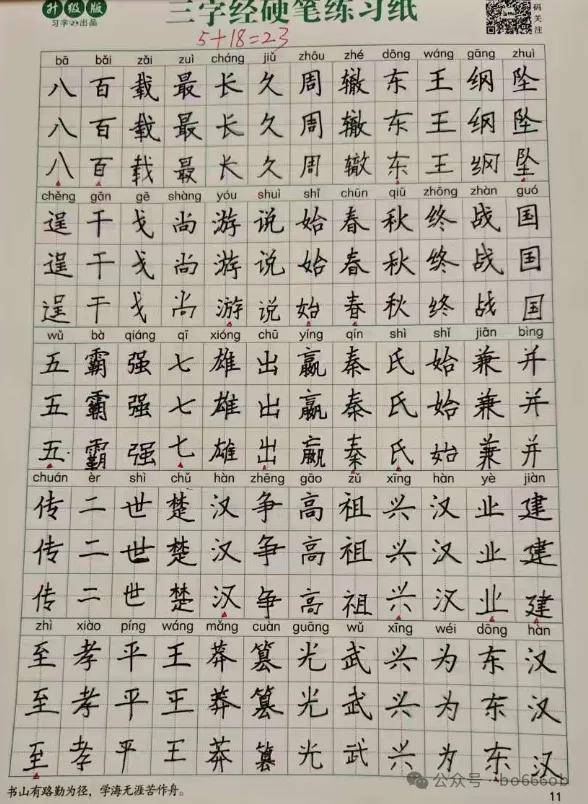 升级版
习字出品
三字经硬笔练习纸
码关注
5+18=23
bā bǎi zǎi zuì cháng jiǔ zhōu zhé dōng wáng gāng zhuì
八百载最长久周辙东王纲坠
八百载最长久周辙东王纲坠
八百载最长久周辙东王纲坠
chěng gān gē shàng yóu shuì shǐ chūn qiū zhōng zhàn guó
逞干戈尚游说始春秋终战国
逞干戈尚游说始春秋终战国
逞干戈尚游说始春秋终战国
wǔ bà qiáng qī xióng chū yíng qín shì shǐ jiān bìng
五霸强七雄出嬴秦氏始兼并
五霸强七雄出嬴秦氏始兼并
五霸强七雄出嬴秦氏始兼并
chuán èr shì chǔ hàn zhēng gāo zǔ xīng hàn yè jiàn
传二世楚汉争高祖兴汉业建
传二世楚汉争高祖兴汉业建
传二世楚汉争高祖兴汉业建
zhì xiào píng wáng mǎng cuàn guāng wǔ xīng wéi dōng hàn
至孝平王莽篡光武兴为东汉
至孝平王莽篡光武兴为东汉
至孝平王莽篡光武兴为东汉
书山有路勤为径，学海无涯苦作舟。
公众号·bo666ob
11